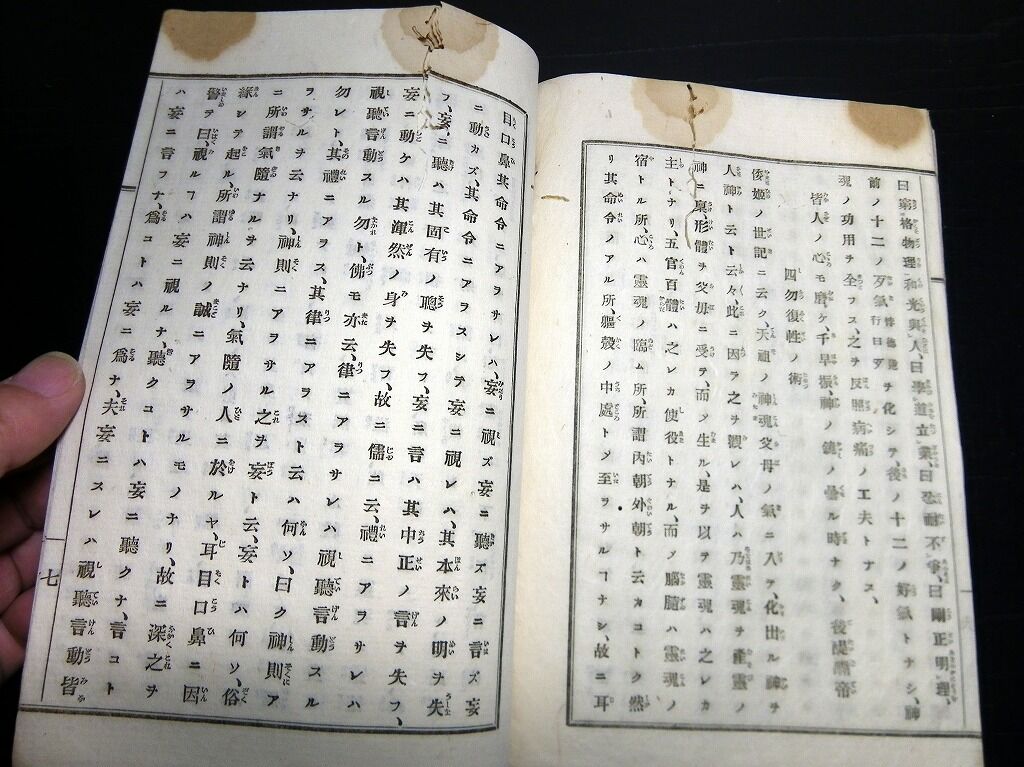 曰窮格物理、和光與人、曰學道立業、曰忍耐不爭、曰剛正明理、
前ノ十二ノ歹氣ヲ化シテ、後ノ十二ノ好氣トナシ、神
魂ノ功用ヲ全フス、之ヲ反照病痛ノ工夫トナス、
皆人ノ心モ磨ケ、千早振、神ノ鏡ノ曇ル時ナク、後醍醐帝
四勿復性ノ術
倭姬ノ世記ニ云ク、天祖ノ神魂父母ノ氣ニ入テ、化出ル神ヲ
人神ト云ト云々、此ニ因テ之ヲ觀レハ、人ハ乃靈魂ヲ產靈ノ
神ニ稟、形體ヲ父母ニ受テ、而メ生ル、是ヲ以テ靈魂ハ之レカ
主トナリ、五官百體ハ之レカ使役トナル、而ノ腦髓ハ靈魂ノ
宿トル所、心ハ靈魂ノ臨ム所、所謂內朝外朝ト云カコトク然
リ其命令ノアル所、軀殼ノ中處トメ至ヲサルヿナシ、故ニ耳
目口鼻其命令ニアラサレハ、妄ニ視ズ妄ニ聽ズ妄ニ言ズ妄
ニ動カズ、其命令ニアラスシテ妄ニ視レハ、其本來ノ明ヲ失
フ、妄ニ聽ハ其固有ノ聰ヲ失フ、妄ニ言ハ其中正ノ言ヲ失フ、
妄ニ動ケハ其渾然ノ身ヲ失フ、故ニ儒ニ云、禮ニアヲサレハ
視聽言動スル勿ト、佛モ亦云、律ニアラサレハ視聽言動スル
勿レト、其禮ニアラス、其律ニアラスト云ハ何ソ、曰ク神則ア
ラサルヲ云ナリ、神則ニアラサル之ヲ妄ト云、妄トハ何ソ、俗
ニ所謂氣隨ナルヲ云ナリ、氣隨ノ人ニ於ルヤ、耳目口鼻ニ因
緣シテ起ル、所謂神則ノ誠ニアヲサルモノナリ、故ニ深之ヲ
警テ曰、視ルヿハ妄ニ視ルナ、聽クコトハ妄ニ聽クナ、言コト
ハ妄ニ言フナ、爲コトハ妄ニ爲ナ、夫妄ニスレハ視聽言動皆
七